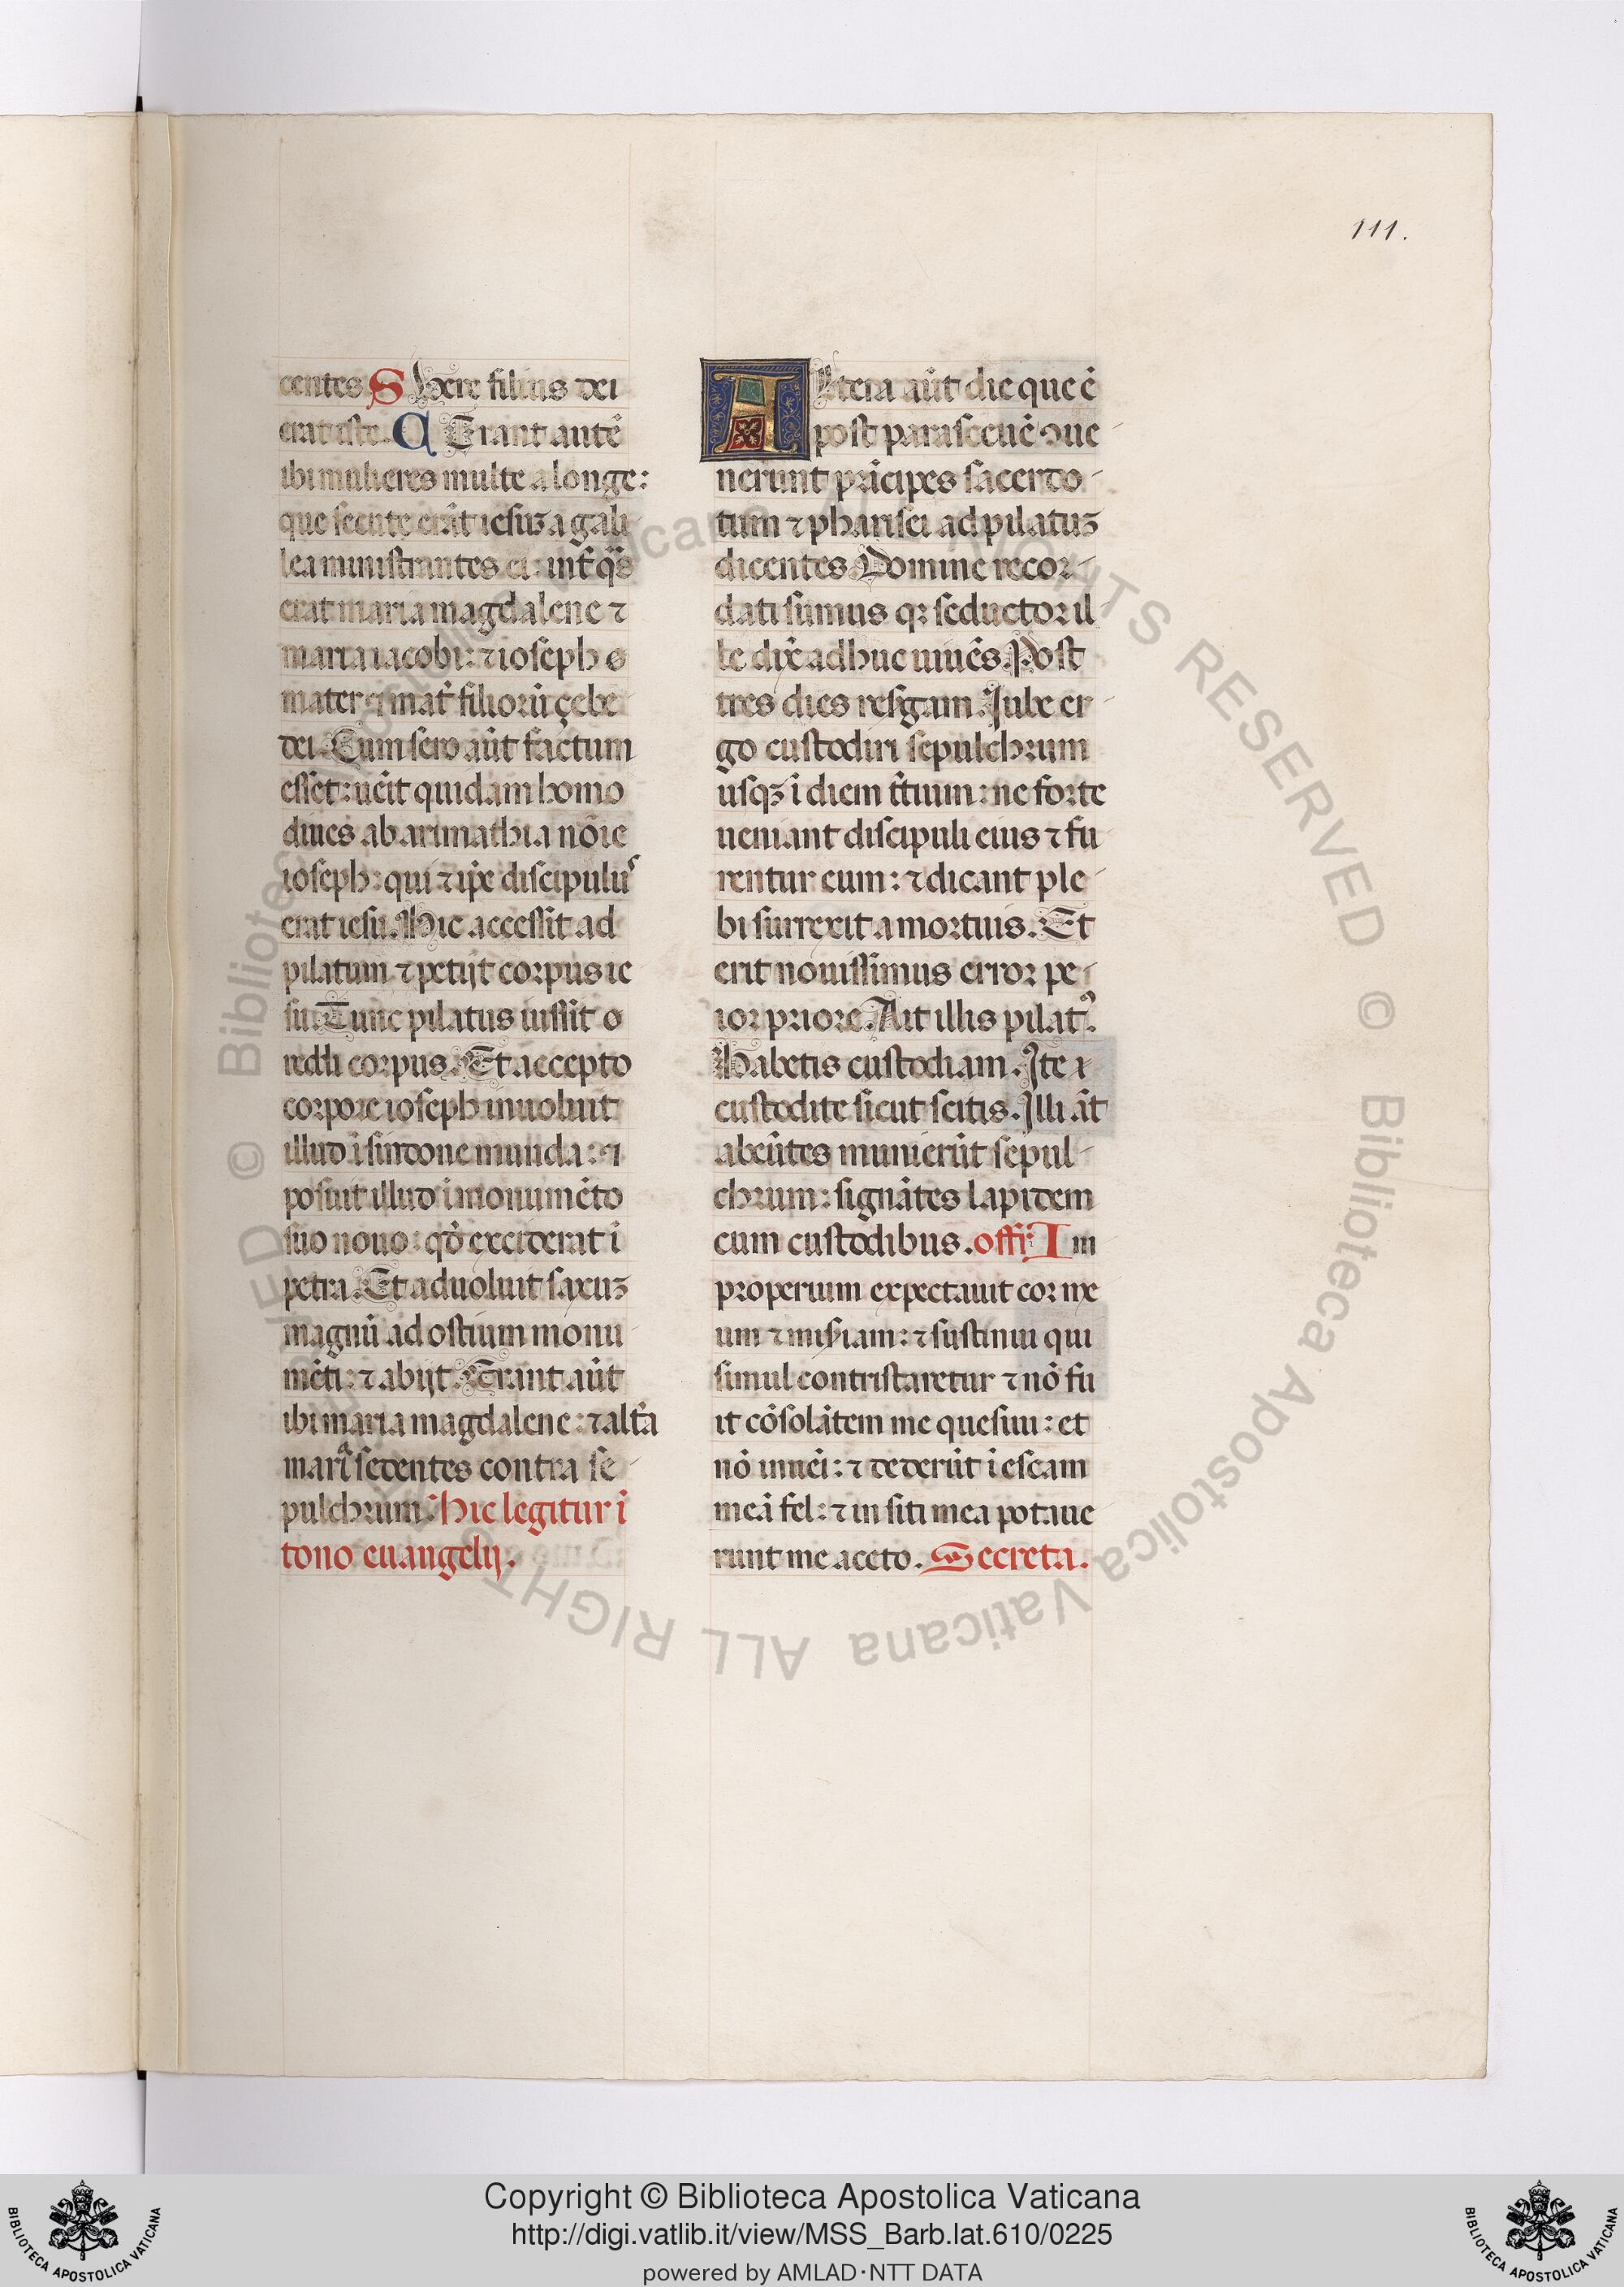 111.
centes S Vere filius dei
erat iste. C Erant autē
ibi mulieres multe a longe:
que secute erāt iesuꝫ a gali
lea ministrantes ei: int̄ qͣs
erat maria magdalene ⁊
maria iacobi: ⁊ ioseph
mater ⁊ mat̄ filioꝝ çebe
dei. Cum sero aūt factum
esset: ueīt quidam homo
diues ab arimathia nōie
ioseph: qui ⁊ ipē discipulus
erat iesu. Hic accessit ad
pilatum ⁊ petijt corpus ie
su. Tunc pilatus iussit
reddi corpus. Et accepto
corpore ioseph inuoluit
illud ī sindone munda: ⁊
posuit illud ī monumēto
suo nouo: qḋ exciderat ī
petra. Et aduoluit saxuꝫ
magnū ad ostium monu
mēti: ⁊ abijt. Erant aūt
ibi maria magdalene: ⁊ altā
mariª sedentes contra se
pulchrum. Hic legitur ī
tono euangelij.
Altera aūt die que ē
post parasceuē ↄue
nerunt prīcipes sacerdo
tum ⁊ pharisei ad pilatuꝫ
dicentes. Domine recor
dati sumus qꝛ seductor il
le dix̄ adhuc uiuēs. Post
tres dies resg̃am. Iube er
go custodiri sepulchrum
usqꝫ ī diem t̄tium: ne forte
ueniant discipuli eius ⁊ fu
rentur eum: ⁊ dicant ple
bi surrexit a mortuis. Et
erit nouissimus error pe
ior priore. Ait illis pilatꝰ.
Habetis custodiam. Ite ⁊
custodite sicut scitis. Illi āt
abeūtes munierūt sepul
chrum: signātes lapidem
cum custodibus. offī. Im
properium expectauit cor me
um ⁊ miṡiam: ⁊ sustinui qui
simul contristaretur ⁊ nō fu
it cōsolātem me quesiui: et
nō inuēi: ⁊ dederūt ī escam
meā fel: ⁊ in siti mea potaue
runt me aceto. Secreta.
© Biblioteca Apostolica Vaticana ALL RIGHTS RESERVED © Biblioteca Apostolica Vaticana ALL RIGHTS RESERVED
BIBLIOTECA APOSTOLICA VATICANA
Copyright © Biblioteca Apostolica Vaticana
http://digi.vatlib.it/view/MSS_Barb.lat.610/0225
powered by AMLAD·NTT DATA
BIBLIOTECA APOSTOLICA VATICANA